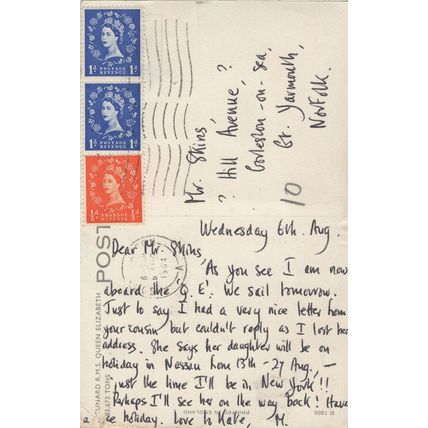 1d 1d
POSTAGE REVENUE
1d 1d
POSTAGE REVENUE
½d ½d
POSTAGE REVENUE
Mr. Skins,
? Hill Avenue, ?
Gorleston-on-Sea,
Gt. Yarmouth,
Norfolk.
10
POST
CUNARD R.M.S. QUEEN ELIZABETH
83,673 TONS
Wednesday 6th. Aug.
Dear Mr. Skins,
As you see I am now
aboard the 'Q.E'. We sail tomorrow.
Just to say I had a very nice letter from
your cousin but couldn't reply as I lost her
address. She says her daughter will be on
holiday in Nassau from 13th - 27 Aug., -
just the time I'll be in New York!!
Perhaps I'll see her on the way back! Have
a holiday. Love to Kate, M.
PRINTED IN ENGLAND